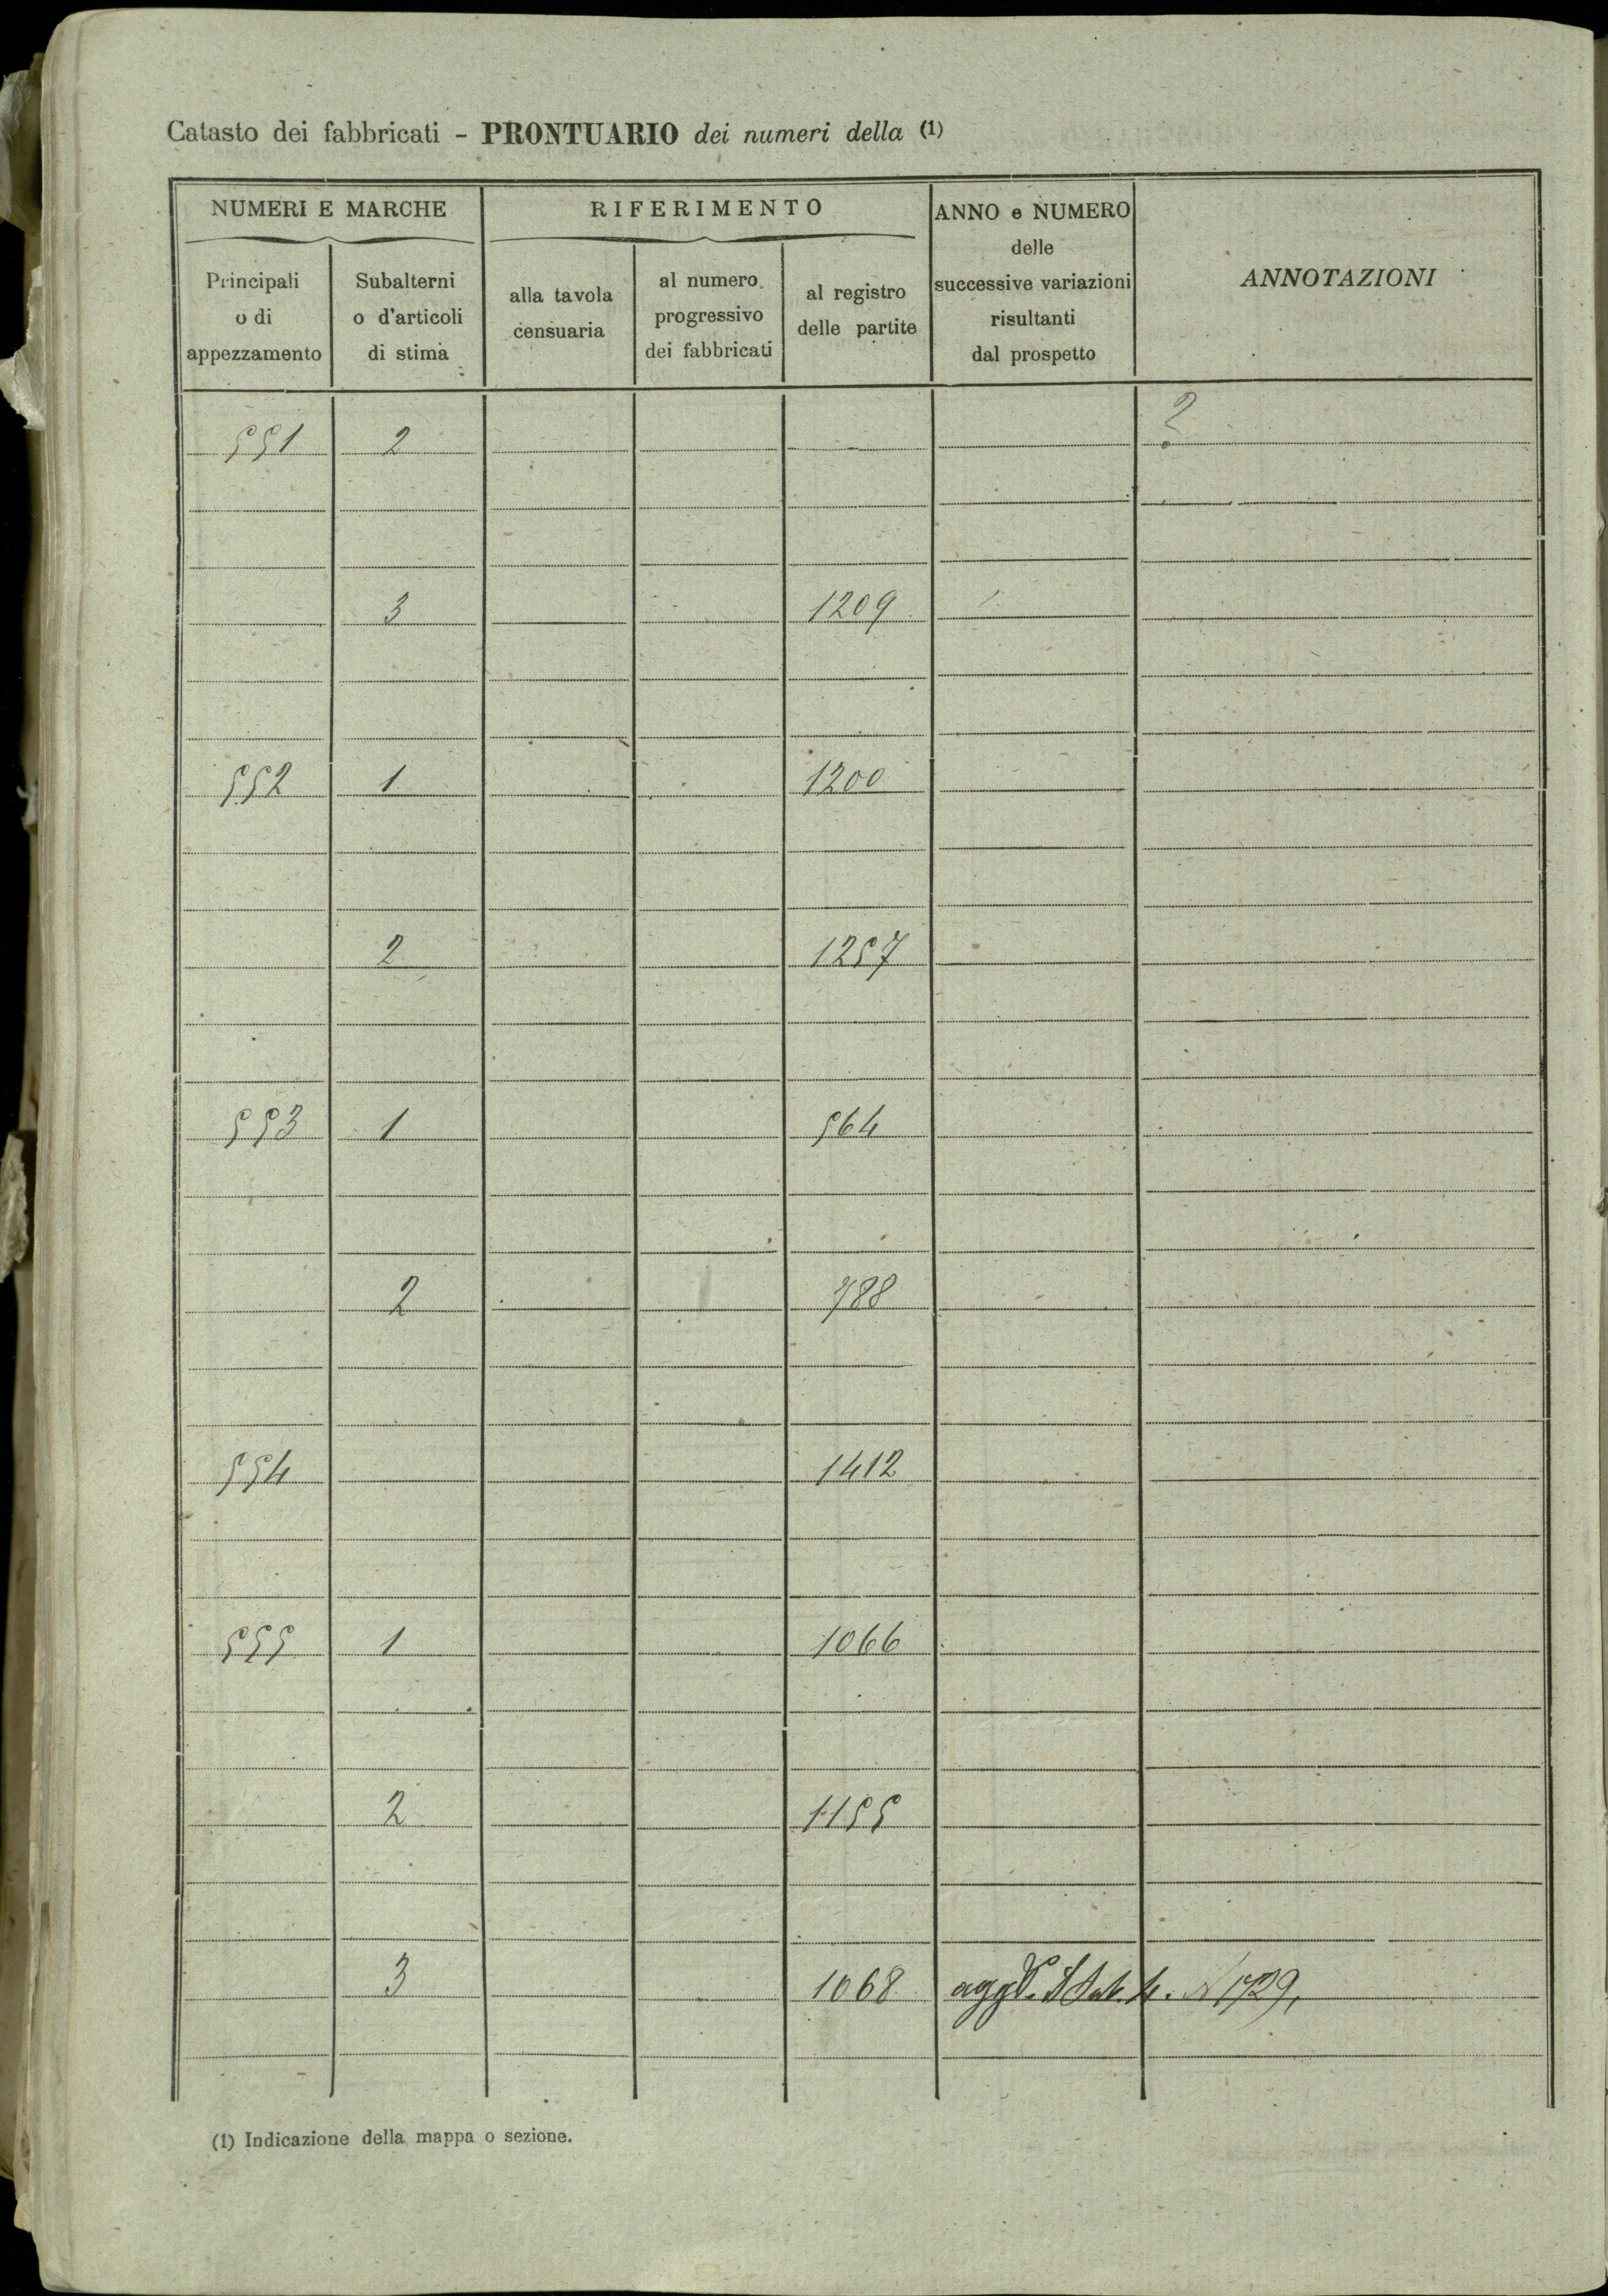 Catasto dei fabbricati - PRONTUARIO dei numeri della (1)
NUMERI E MARCHE RIFERIMENTO ANNO e NUMERO delle successive variazioni risultanti dal prospetto ANNOTAZIONI
Principali o di appezzamento Subalterni o d'articoli di stima alla tavola censuaria al numero progressivo dei fabbricati al registro delle partite
551 2 ?
3 1209
552 1 1200
2 1257
553 1 564
2 788
554 1412
555 1 1066
2 1155
3 1068 Sub. 4. N 1729,
(1) Indicazione della mappa o sezione.